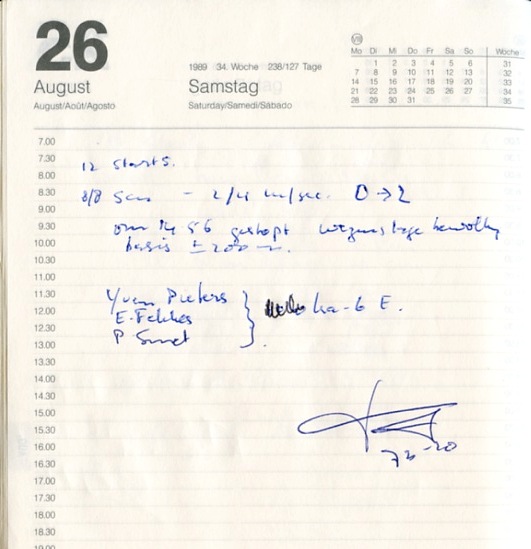 26
August
August/Août/Agosto
1989 34. Woche 238/127 Tage
Samstag
Saturday/Samedi/Sábado
VIII
Mo Di Mi Do Fr Sa So Woche
1 2 3 4 5 6 31
7 8 9 10 11 12 13 32
14 15 16 17 18 19 20 33
21 22 23 24 25 26 27 34
28 29 30 31 35
7.00
7.30
12 starts.
8.00
8.30
8/8 - 2/4 m/sec. O → Z
9.00
9.30
om 14 56 gestopt wegens lage bewolking
10.00
basis ± 200 m.
10.30
11.00
11.30
Yven Pieters
12.00
E. Fekkes ka-6 E.
12.30
P. Smet
13.00
13.30
14.00
14.30
15.00
15.30
16.00
16.30
17.00
17.30
18.00
18.30
19.00